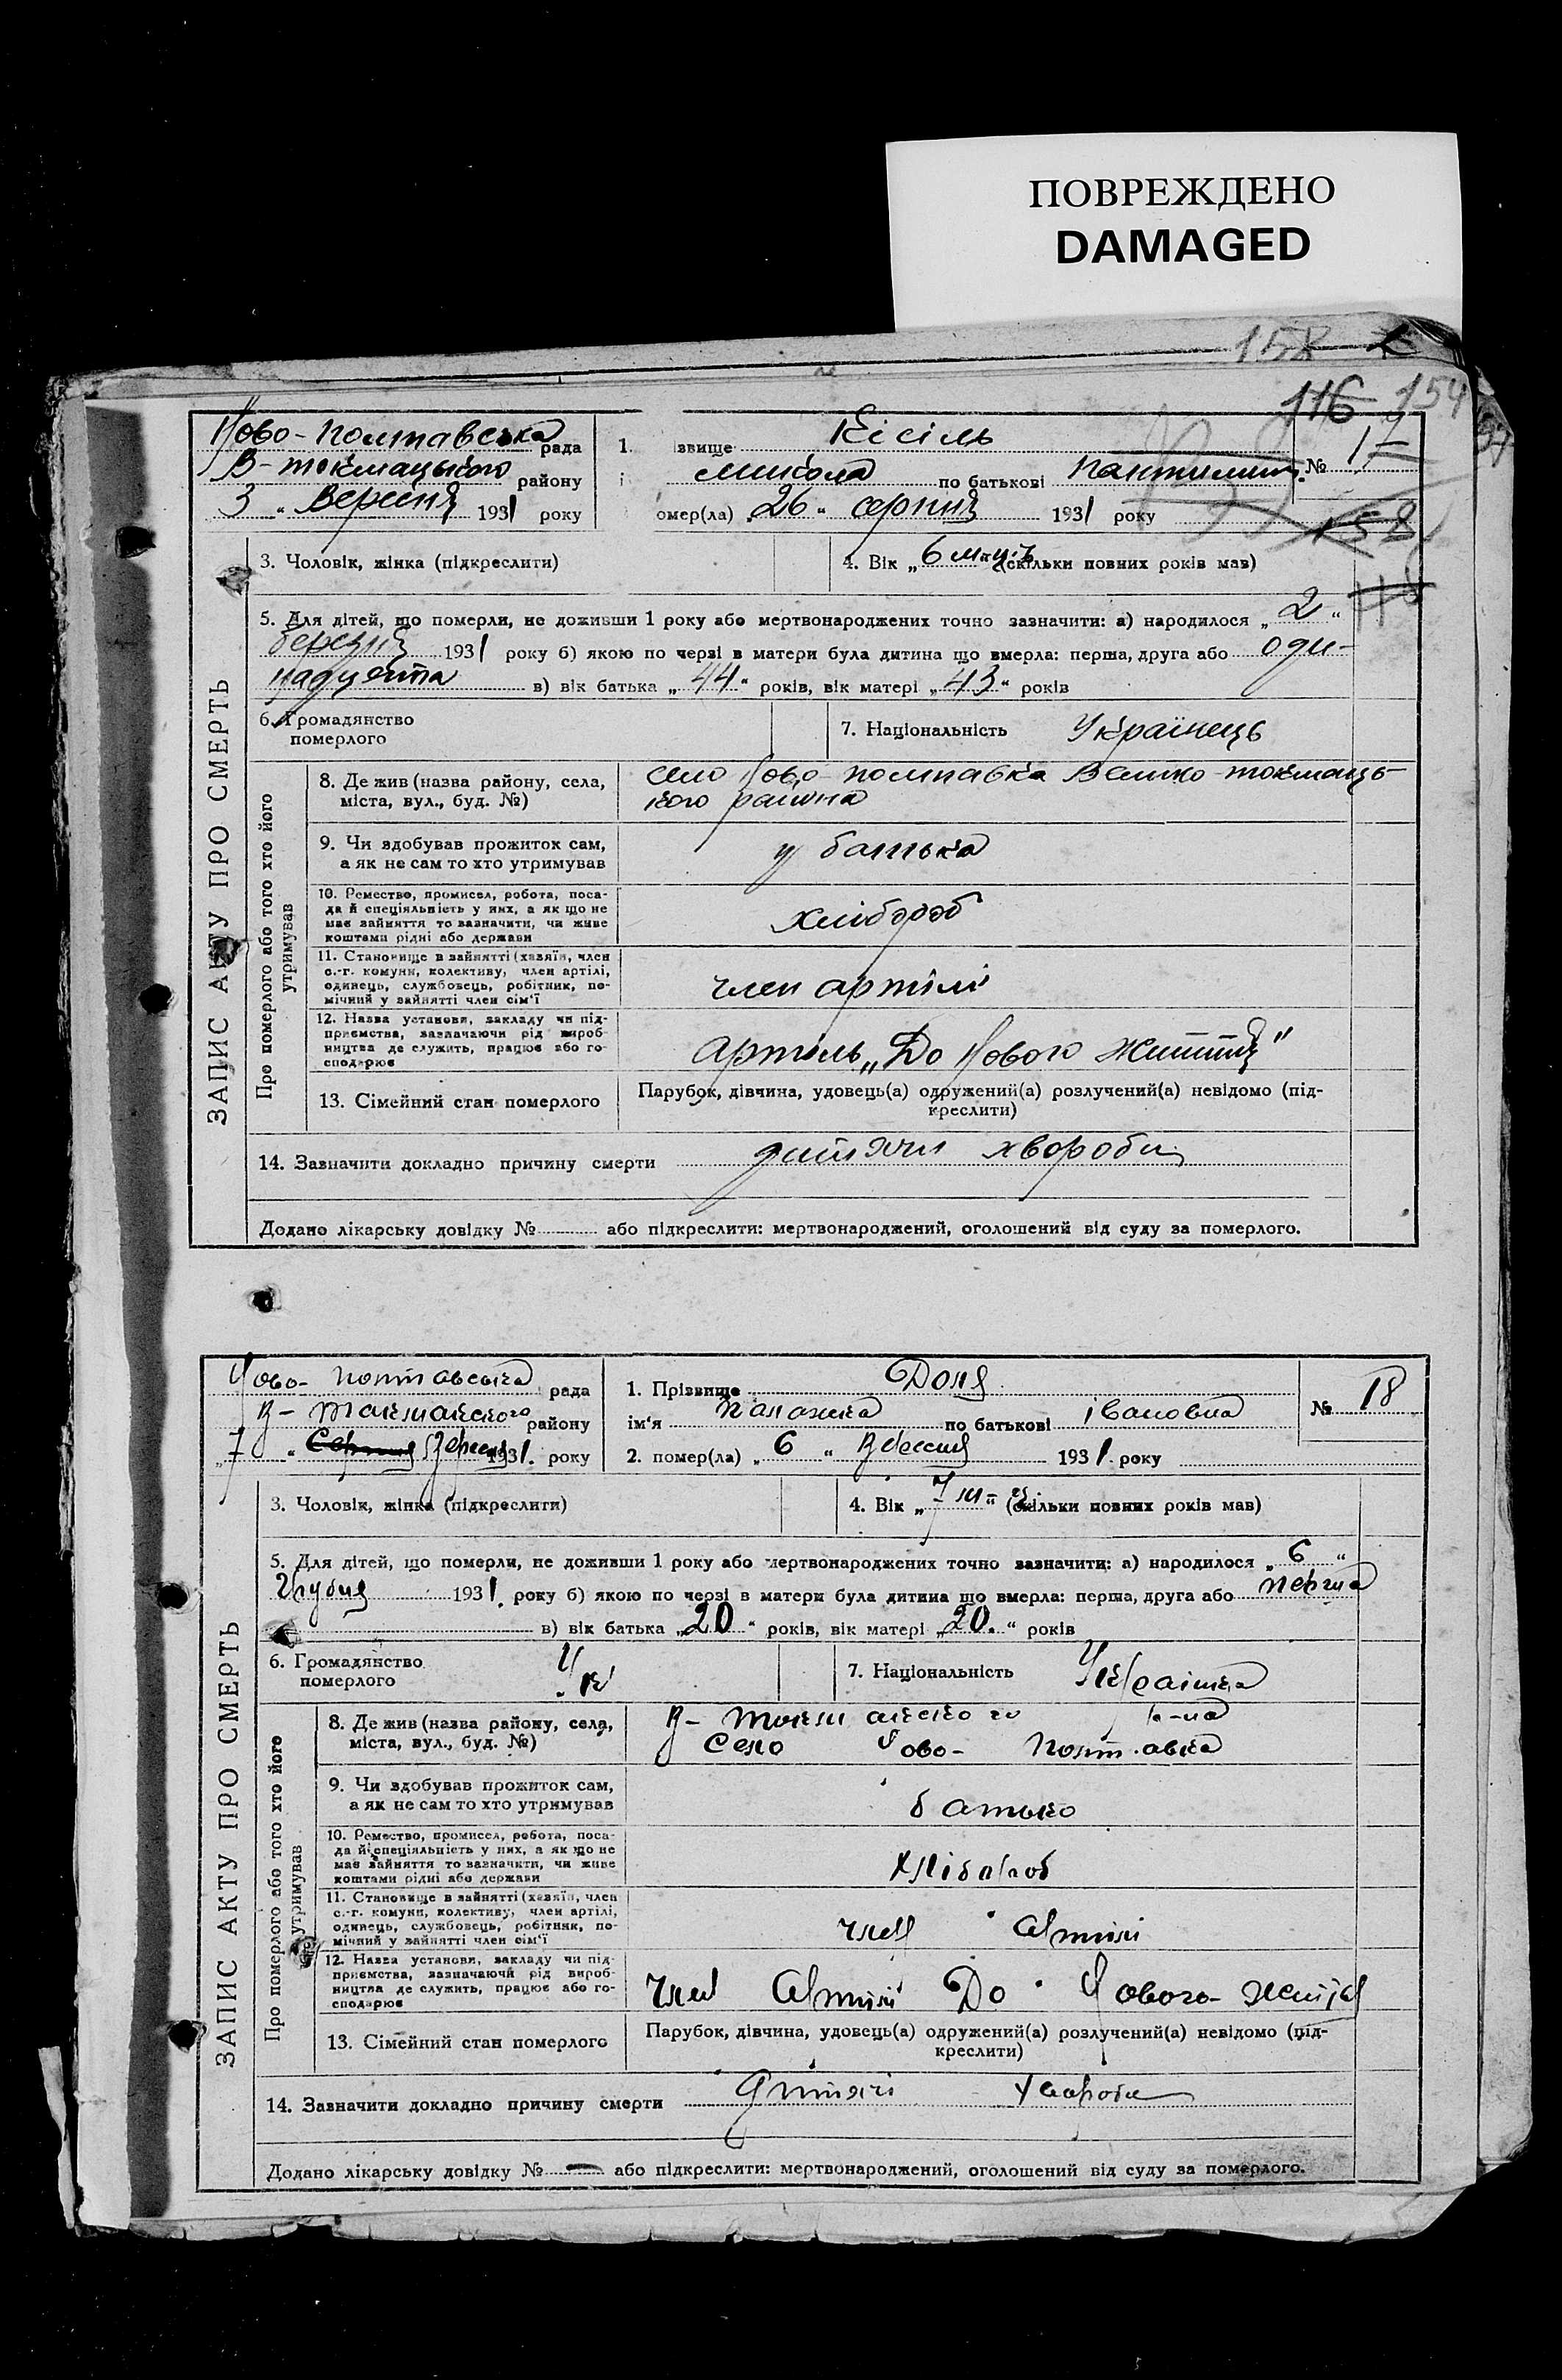 ПОВРЕЖДЕНО
DAMAGED
158
116 154
Ново-Полтавська рада
В-Токмацького району
3 „ Вересня 1931 року
1. звище Кісіль
і Микола по батькові Пантилим.
омер(ла) „26 „ серпня 1931 року
№ 17
158
ЗАПИС АКТУ ПРО СМЕРТЬ
3. Чоловік, жінка (підкреслити)
4. Вік „6 м-ців (скільки повних років мав)
5. Для дітей, що померли, не доживши 1 року або мертвонароджених точно зазначити: а) народилося „2“
березня 1931 року б) якою по черзі в матери була дитина що вмерла: перша, друга або оди-
надцята в) вік батька „44“ років, вік матері „43“ років
6. Громадянство
померлого
7. Національність Українець
Про померлого або того хто його
утримував
8. Де жив (назва району, села,
міста, вул., буд. №)
село Ново-Полтавка Велико-Токмаць-
кого района
9. Чи здобував прожиток сам,
а як не сам то хто утримував
у батька
10. Ремество, промисел, робота, поса-
да й спеціяльність у них, а як що не
має зайняття то зазначити, чи живе
коштами рідні або держави
хлібороб
11. Становище в зайнятті (хазяїн, член
с.-г. комуни, колективу, член артілі,
одинець, службовець, робітник, по-
мічний у зайнятті член сім'ї
член артілі
12. Назва установи, закладу чи під-
приємства, зазначаючи рід вироб-
ництва де служить, працює або го-
сподарює
Артіль „До Нового Життя"
13. Сімейний стан померлого
Парубок, дівчина, удовець(а) одружений(а) розлучений(а) невідомо (під-
креслити)
14. Зазначити докладно причину смерти дитячи хвороби
Додано лікарську довідку № або підкреслити: мертвонароджений, оголошений від суду за померлого.
Ново-Полтавська рада
В-Токмакского району
„7 „ Серпня Вересня 1931. року
1. Прізвище Доля
ім'я Палажка по батькові Івановна
2. помер(ла) „6 „ 1931. року
№ 18
ЗАПИС АКТУ ПРО СМЕРТЬ
3. Чоловік, жінка (підкреслити)
4. Вік „7 м-ц. (скільки повних років мав)
5. Для дітей, що померли, не доживши 1 року або мертвонароджених точно зазначити: а) народилося „6“
1931. року б) якою по черзі в матери була дитина що вмерла: перша, друга або перша
в) вік батька „20“ років, вік матері „20.“ років
6. Громадянство
померлого
Ук
7. Національність Українка
Про померлого або того хто його
утримував
8. Де жив (назва району, села,
міста, вул., буд. №)
В-Токмакского р-на
Село Ново-Полтавка
9. Чи здобував прожиток сам,
а як не сам то хто утримував
батько
10. Ремество, промисел, робота, поса-
да й спеціяльність у них, а як що не
має зайняття то зазначити, чи живе
коштами рідні або держави
хлібороб
11. Становище в зайнятті (хазяїн, член
с.-г. комуни, колективу, член артілі,
одинець, службовець, робітник, по-
мічний у зайнятті член сім'ї
член Артілі
12. Назва установи, закладу чи під-
приємства, зазначаючи рід вироб-
ництва де служить, працює або го-
сподарює
член Артілі До Нового-
13. Сімейний стан померлого
Парубок, дівчина, удовець(а) одружений(а) розлучений(а) невідомо (під-
креслити)
14. Зазначити докладно причину смерти Дитячі хвороби
Додано лікарську довідку № — або підкреслити: мертвонароджений, оголошений від суду за померлого.